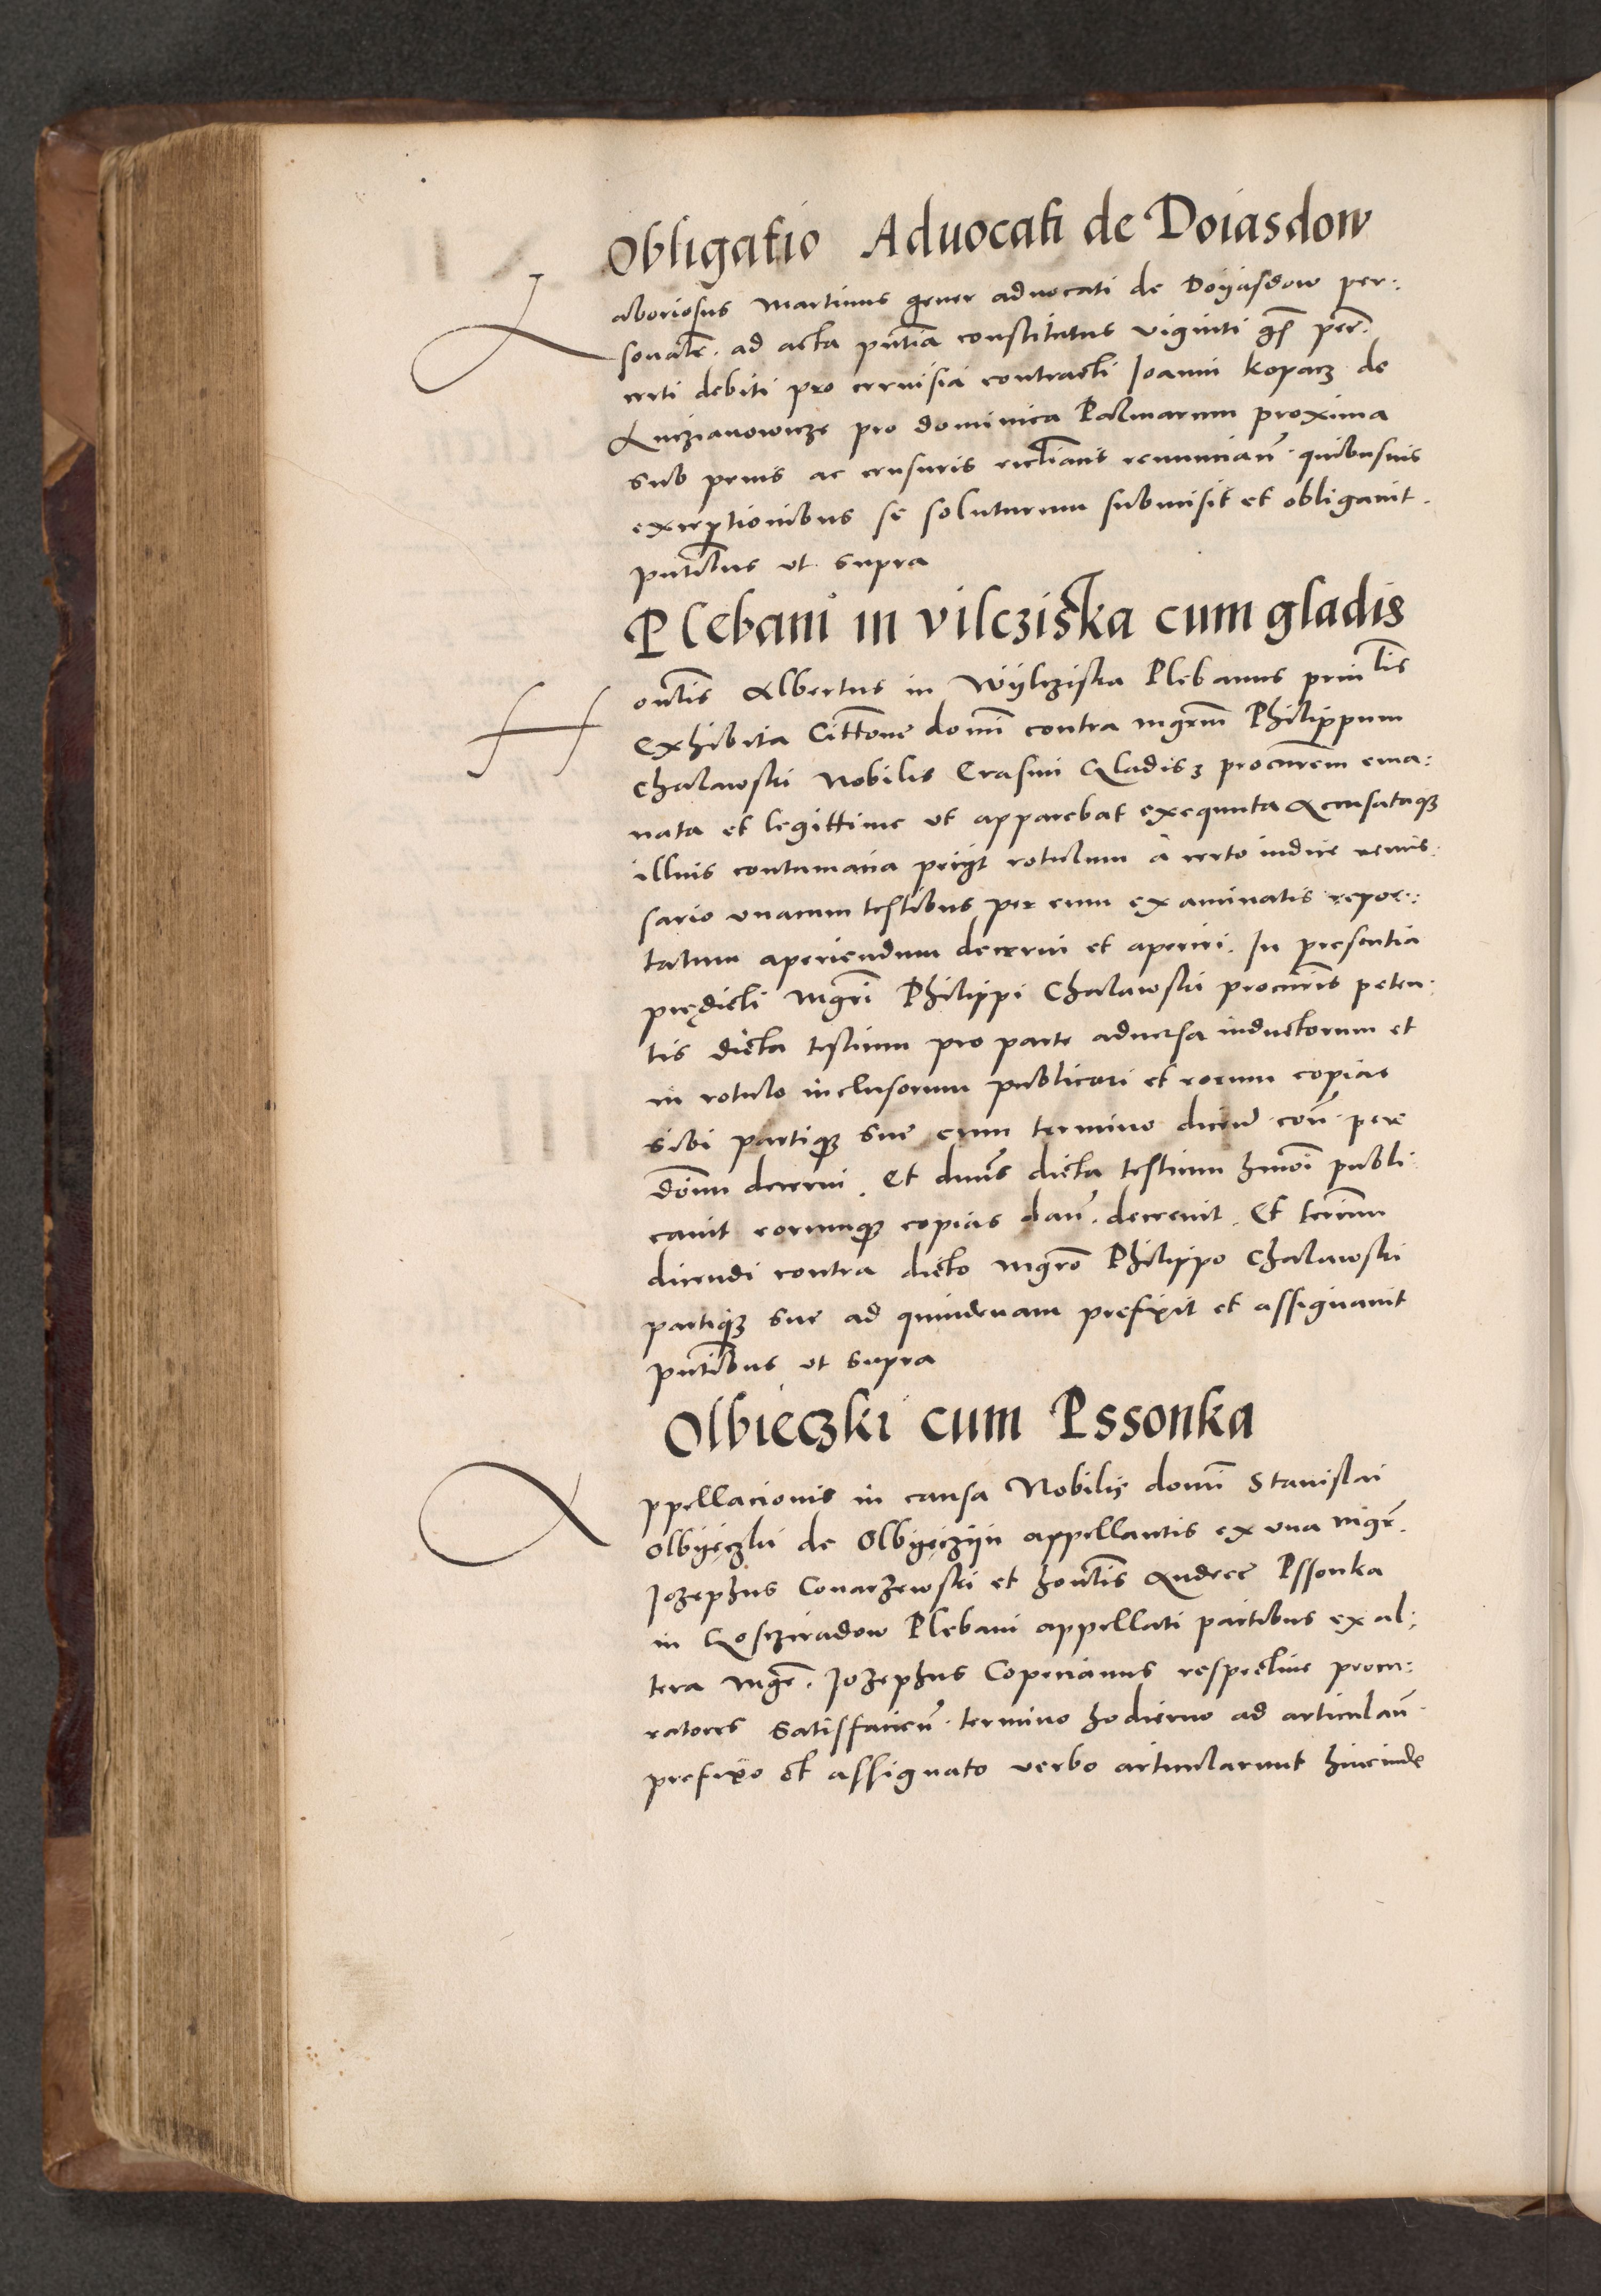 Obligatio Aduocati de Doiasdow
Laboriosus Martinus gener aduocati de Doyasdow per:
sonalr̃. ad acta pn̄tia constitutus viginti gr̃ pecc̃.
certi debiti pro ceruisia contracti Joanni Kopacz de
Luczianowicze pro dominica Palmarum proxima
sub penis ac censuris ecclīacis renuncian̄. quibusuis
exceptionibus se soluturum submisit et obligauit.
pn̄tibus vt supra
Plebani in vilcziska cum gladis
Honblis Albertus in Wylcziska Plebanus prin̄lis
Exhibita Citt̄one domī contra mgr̄m Philippum
Chalawski Nobilis Erasmi Gladisz procur̄em ema:
nata et legittime vt apparebat exequuta Accusataq3
illius contumatia peciit rotulum a certo iudice
sario vnacum testibus per eum examinatis repor:
tatum aperiendum decerni et aperiri. In presentia
prędicti Mgr̄i Philippi Chalawski procur̄is peten:
tis dicta testium pro parte aduersa inductorum et
in rotulo inclusorum publicari et eorum copias
sibi partiq3 sue cum termino dicen̄d con̄. per
dōnum decerni. Et dn̄us dicta testium hmōi publi
cauit eorumq3 copias dan̄. decreuit. Et ter̄inum
dicendi contra dicto Mgr̄o Philippo Chalawski
partiq3 sue ad quindenam prefixit et assignauit
pn̄tibus vt supra
Olbieczki cum Pssonka
Appellacionis in causa Nobilis domī Stanislai
Olbyęczki de Olbyęczyn appellantis ex vna mgr̄.
Jozephus Conarzewski et hon̄lis Andree Pssonka
in Gosczieradow Plebani appellati partibus ex al:
tera Mgr̄. Jozephus Copecianus respectiue procu:
ratores satisfacien̄. termino hodierno ad articulan̄.
prefixo et assignato verbo articularunt hincinde